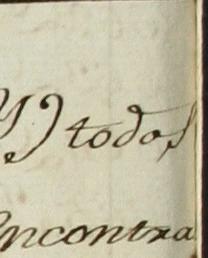 Y) todos
encontra